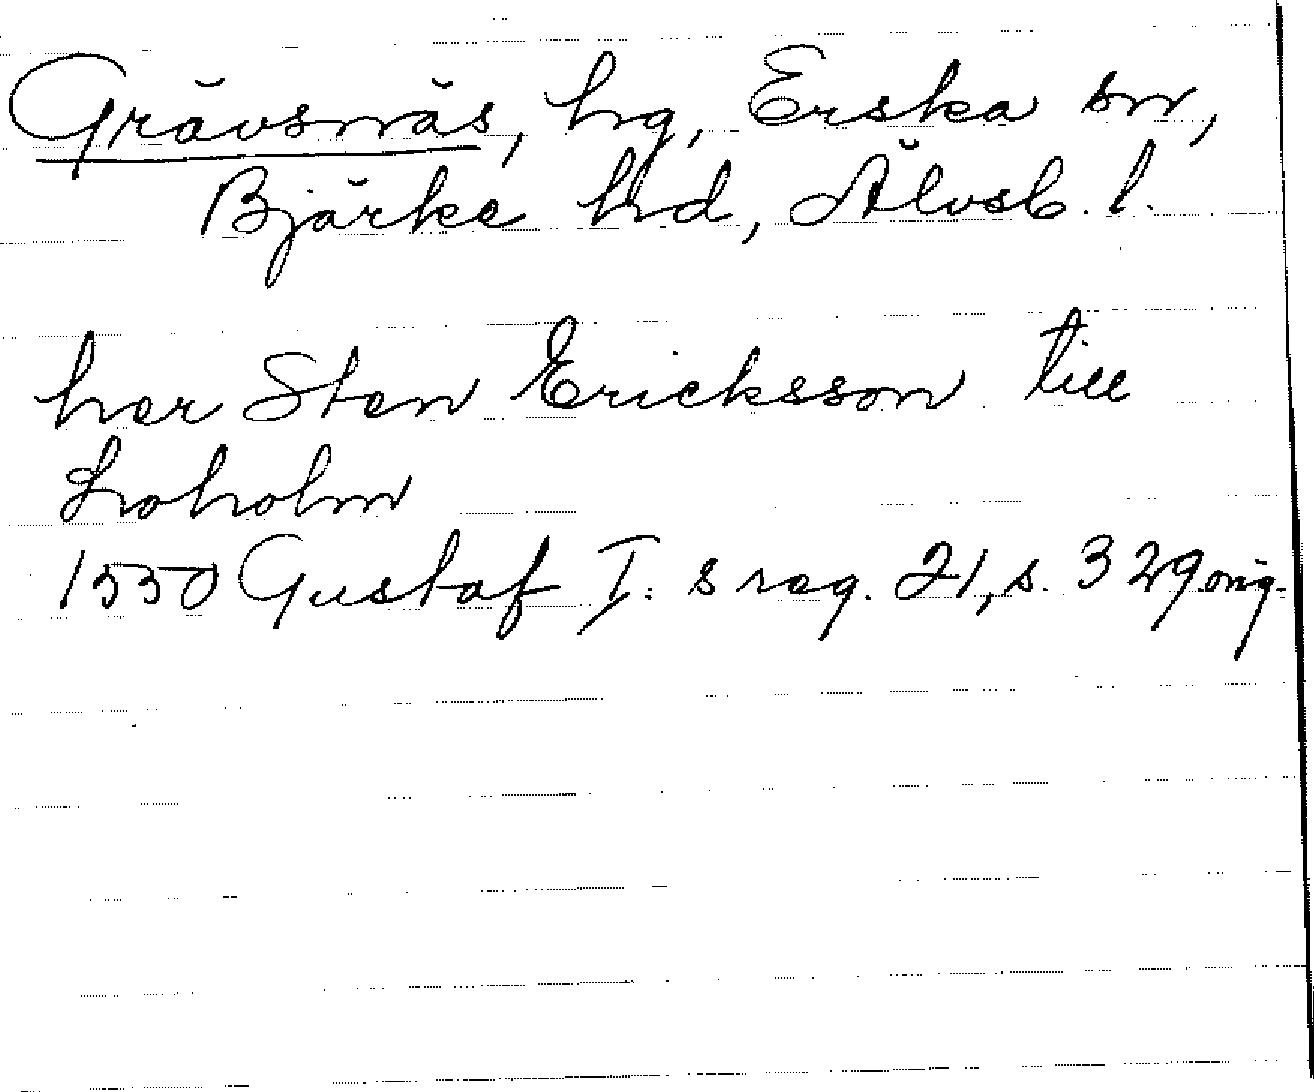 Grävsnäs, hg, Erska sn,
Bjärke hd, Älvsb. l.
her Sten Ericksson till
Loholm
1550 Gustaf I:s reg. 21, s. 329 orig.